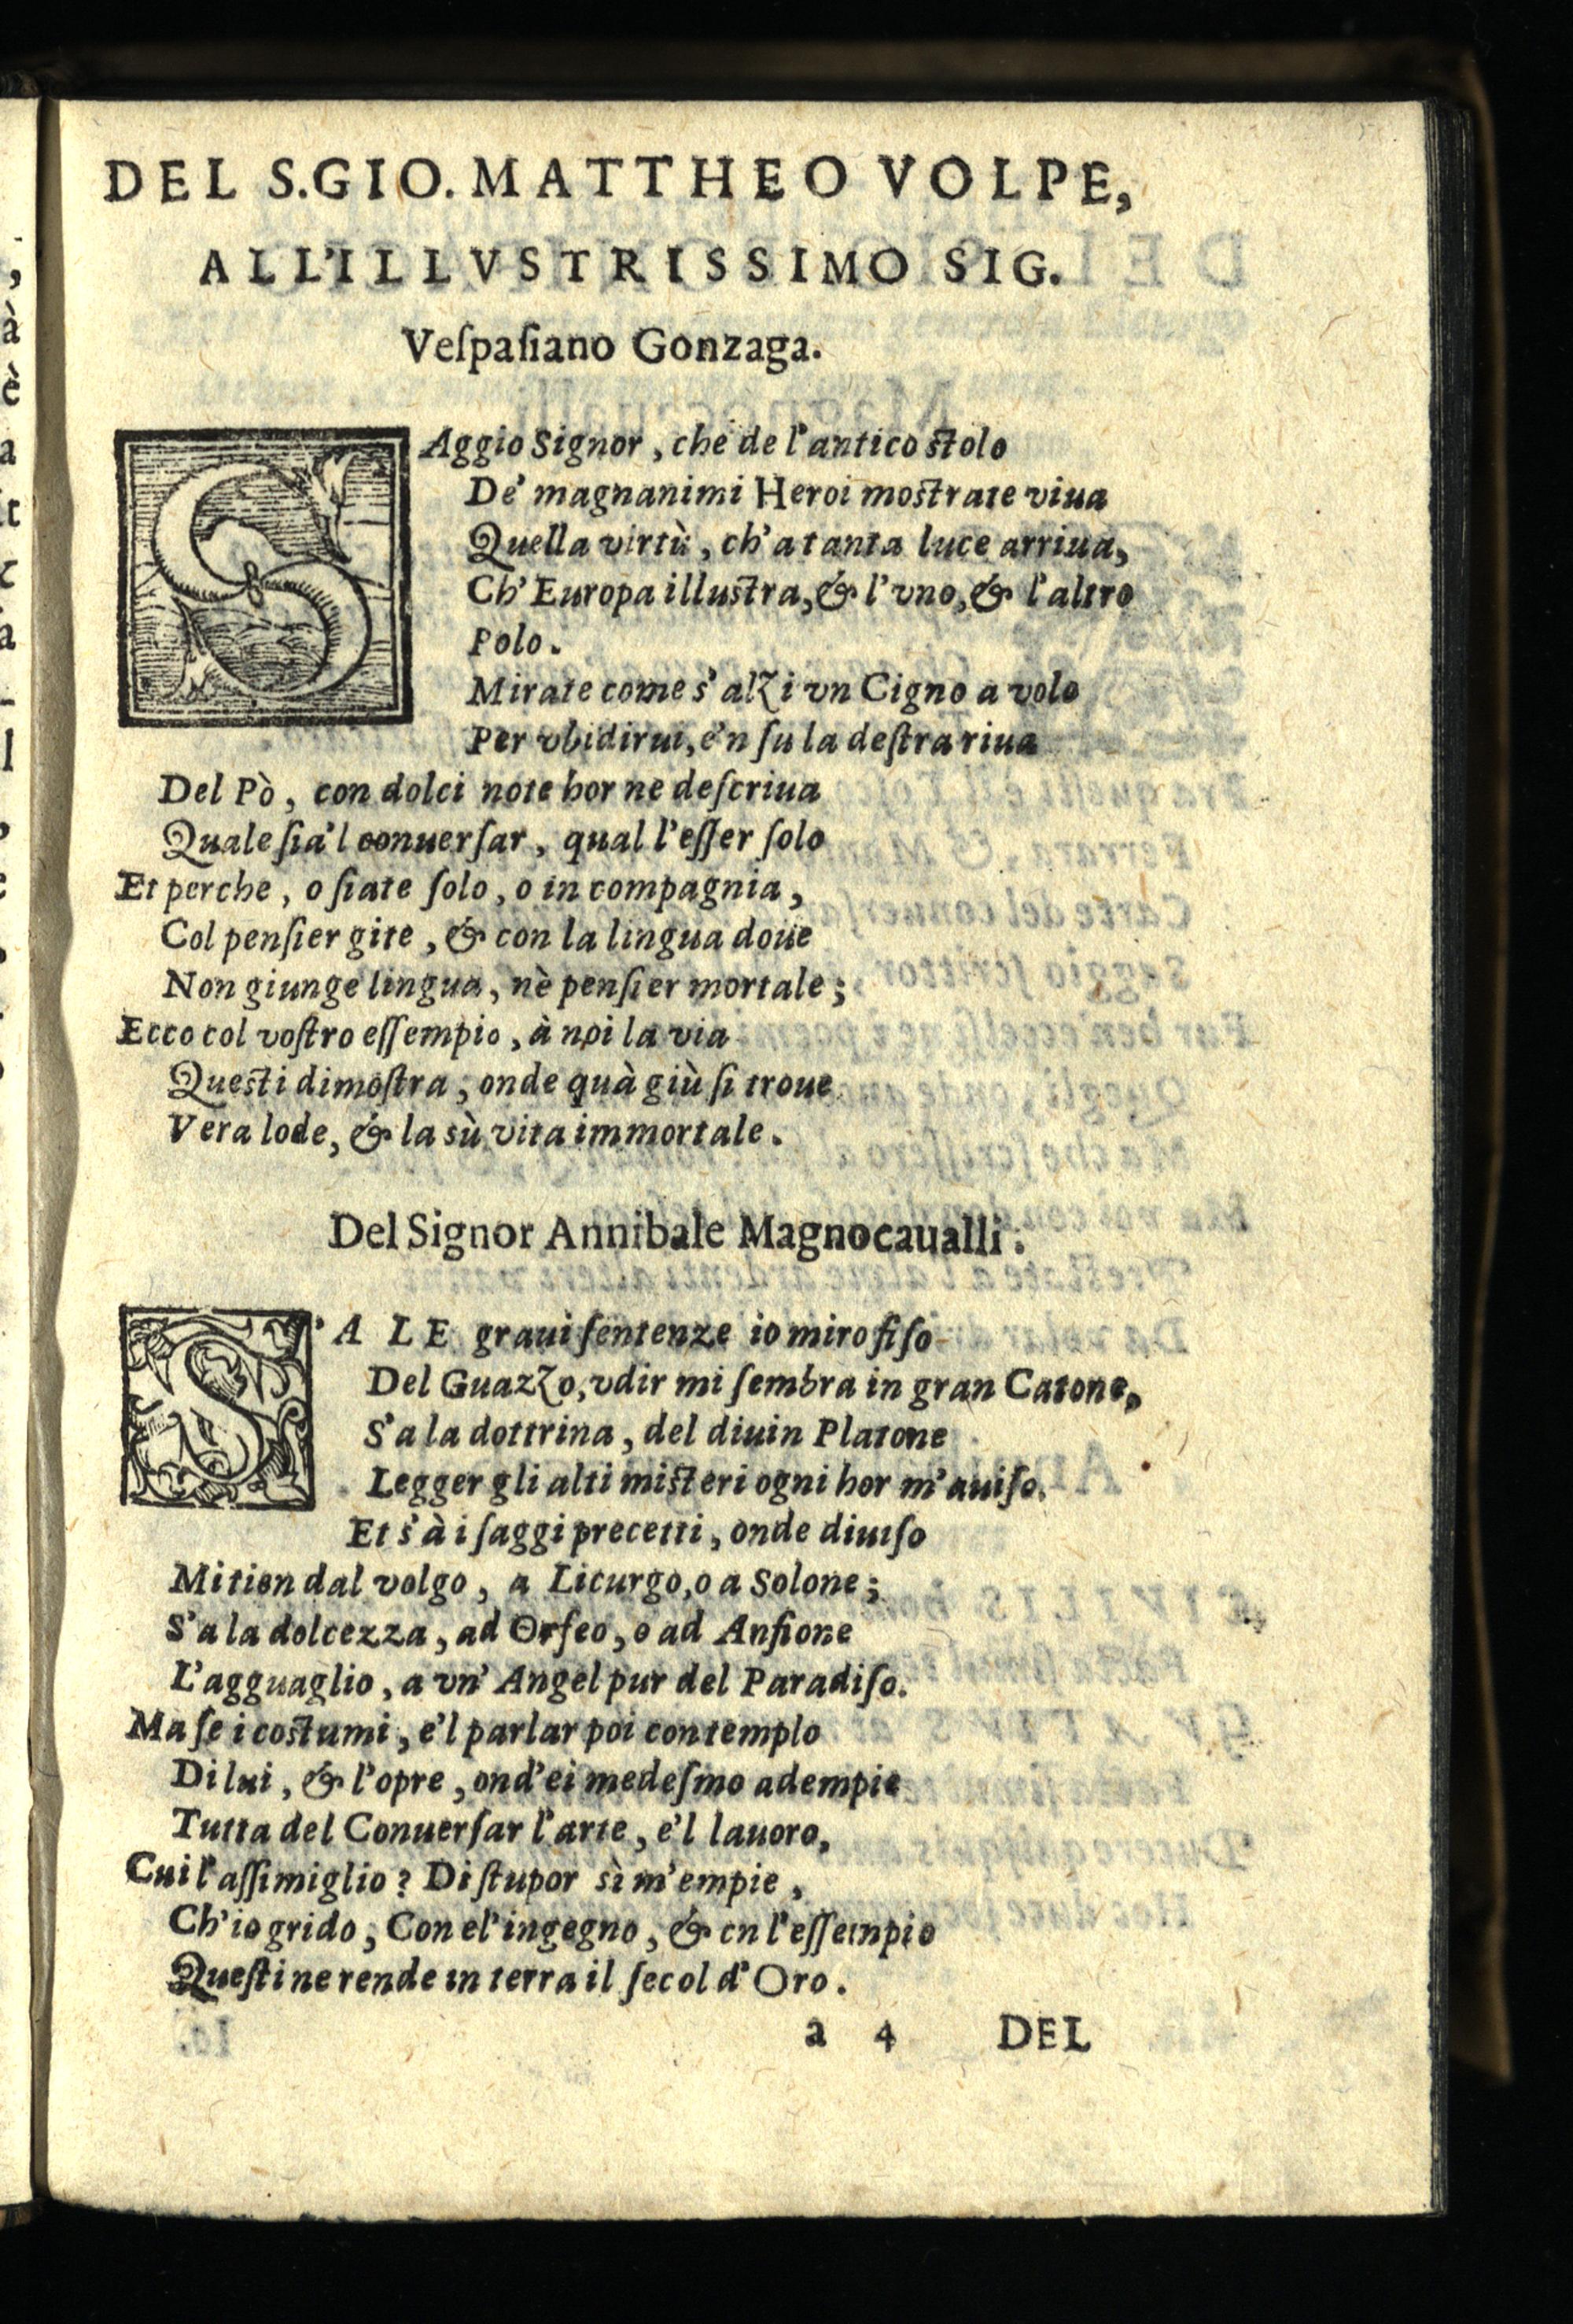 DEL S. GIO. MATTHEO VOLPE,
ALL'ILLVSTRISSIMO SIG.
Veſpaſiano Gonzaga.
SAggio Signor, che de l'antico ſtolo
De' magnanimi Heroi moſtrate viua
Quella virtù, ch'a tanta luce arriua,
Ch'Europa illuſtra, & l'vno, & l'altro
Polo.
Mirate come s'alzi vn Cigno a volo
Per vbidirui, e'n ſu la deſtra riua
Del Pò, con dolci note hor ne deſcriua
Quale ſia'l conuerſar, qual l'eſſer ſolo
Et perche, o ſiate ſolo, o in compagnia,
Col penſier gite, & con la lingua doue
Non giunge lingua, nè penſier mortale;
Ecco col voſtro eſſempio, à noi la via
Queſti dimoſtra, onde quà giù ſi troue
Vera lode, & la sù vita immortale.
Del Signor Annibale Magnocaualli.
S'A LE graui ſentenze io miro fiſo
Del Guazzo, vdir mi ſembra in gran Catone,
S'a la dottrina, del diuin Platone
Legger gli alti miſteri ogni hor m'auiſo.
Et s'à i ſaggi precetti, onde diuiſo
Mi tien dal volgo, a Licurgo, o a Solone;
S'a la dolcezza, ad Orfeo, o ad Anfione
L'agguaglio, a vn' Angel pur del Paradiſo.
Ma ſe i coſtumi, e'l parlar poi contemplo
Di lui, & l'opre, ond'ei medeſmo adempie
Tutta del Conuerſar l'arte, e'l lauoro,
Cui l'aſſimiglio? Di ſtupor sì m'empie,
Ch'io grido, Con el'ingegno, & cn l'eſſempio
Queſti ne rende in terra il ſecol d'Oro.
a 4 DEL